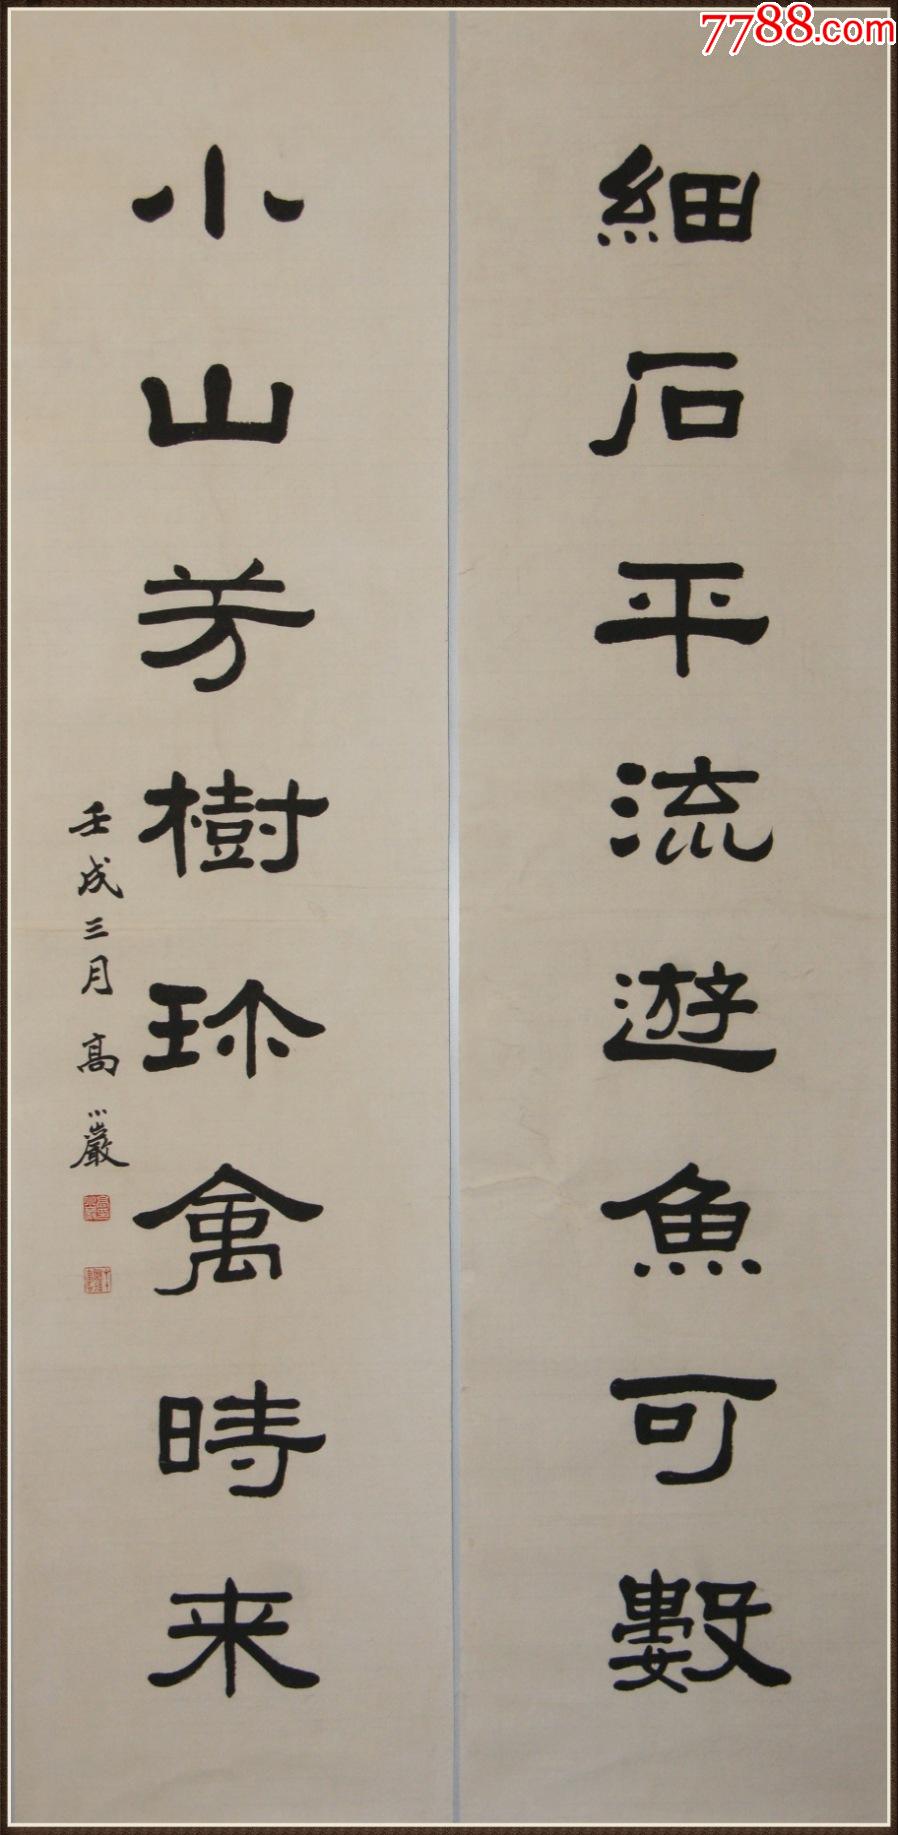 7788.com
細石平流遊魚可數
小山芳樹珎禽時来
壬戌三月 高小巖